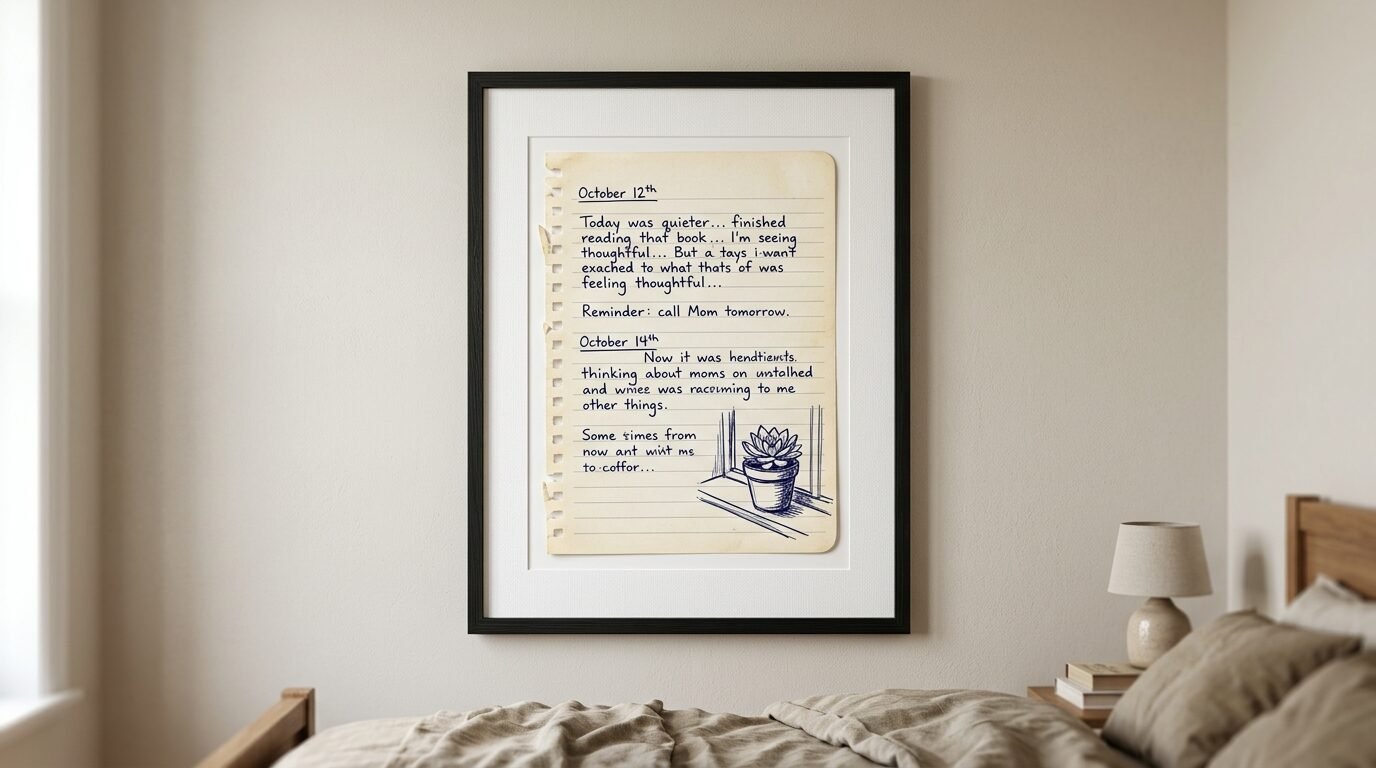 October 12th
Today was quieter... finished
reading that book... I'm seeing
thoughtful... But a tays i·want
exached to what thats of was
feeling thoughtful...
Reminder: call Mom tomorrow.
October 14th
Now it was
thinking about moms on
and was to me
other things.
Some from
now ant me
to·coffor...